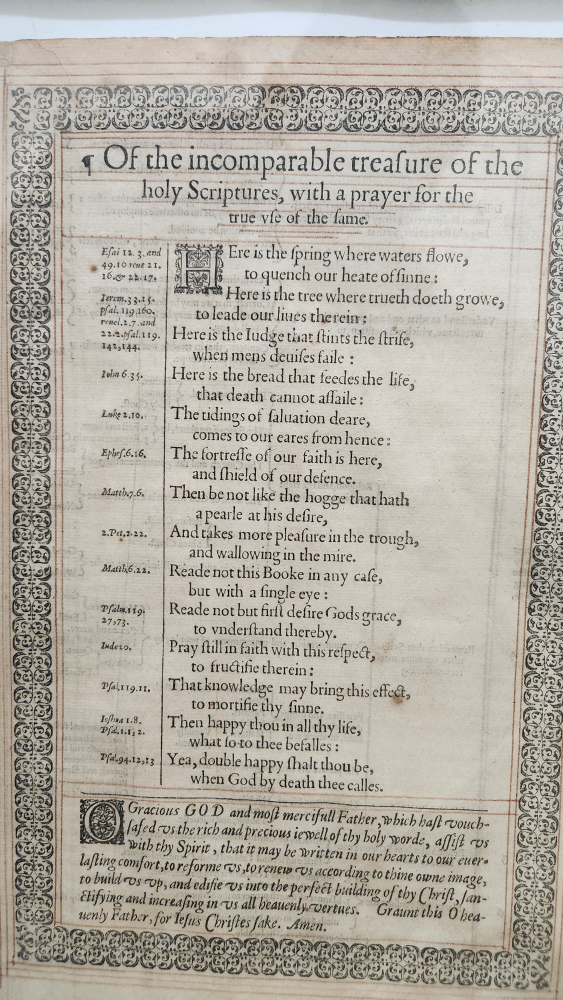 ¶ Of the incomparable treaſure of the
holy Scriptures, with a prayer for the
true vſe of the ſame.
Eſai 12. 3. and
49.10 reue 21.
16.& 22.17.
Ierem.33.15.
pſal.119.160.
reuel.2.7. and
22.2.pſal.119.
142,144.
Iohn 6.35.
Luke 2.10.
Epheſ.6.16.
Matth.7.6.
2.Pet.2.22.
Matth.6.22.
Pſalm.119.
27,73.
Iude 20.
Pſal.119.11.
Ioſhua 1.8.
Pſal.1.1,2.
Pſal.94.12,13
HEre is the ſpring where waters flowe,
to quench our heate of ſinne:
Here is the tree where trueth doeth growe,
to leade our liues therein:
Here is the Iudge that ſtints the ſtrife,
when mens deuiſes faile:
Here is the bread that feedes the life,
that death cannot aſſaile:
The tidings of ſaluation deare,
comes to our eares from hence:
The fortreſſe of our faith is here,
and ſhield of our defence.
Then be not like the hogge that hath
a pearle at his deſire,
And takes more pleaſure in the trough,
and wallowing in the mire.
Reade not this Booke in any caſe,
but with a ſingle eye:
Reade not but firſt deſire Gods grace,
to vnderſtand thereby.
Pray ſtill in faith with this reſpect,
to fructifie therein:
That knowledge may bring this effect,
to mortifie thy ſinne.
Then happy thou in all thy life,
what ſo to thee befalles:
Yea, double happy ſhalt thou be,
when God by death thee calles.
O Gracious GOD and moſt mercifull Father, which haſt vouch-
ſafed vs the rich and precious iewell of thy holy worde, aſſiſt vs
with thy Spirit, that it may be written in our hearts to our euer-
laſting comfort, to reforme vs, to renew vs according to thine owne image,
to build vs vp, and edifie vs into the perfect building of thy Chriſt, ſan-
ctifying and increaſing in vs all heauenly vertues. Graunt this O hea-
uenly Father, for Ieſus Chriſtes ſake. Amen.